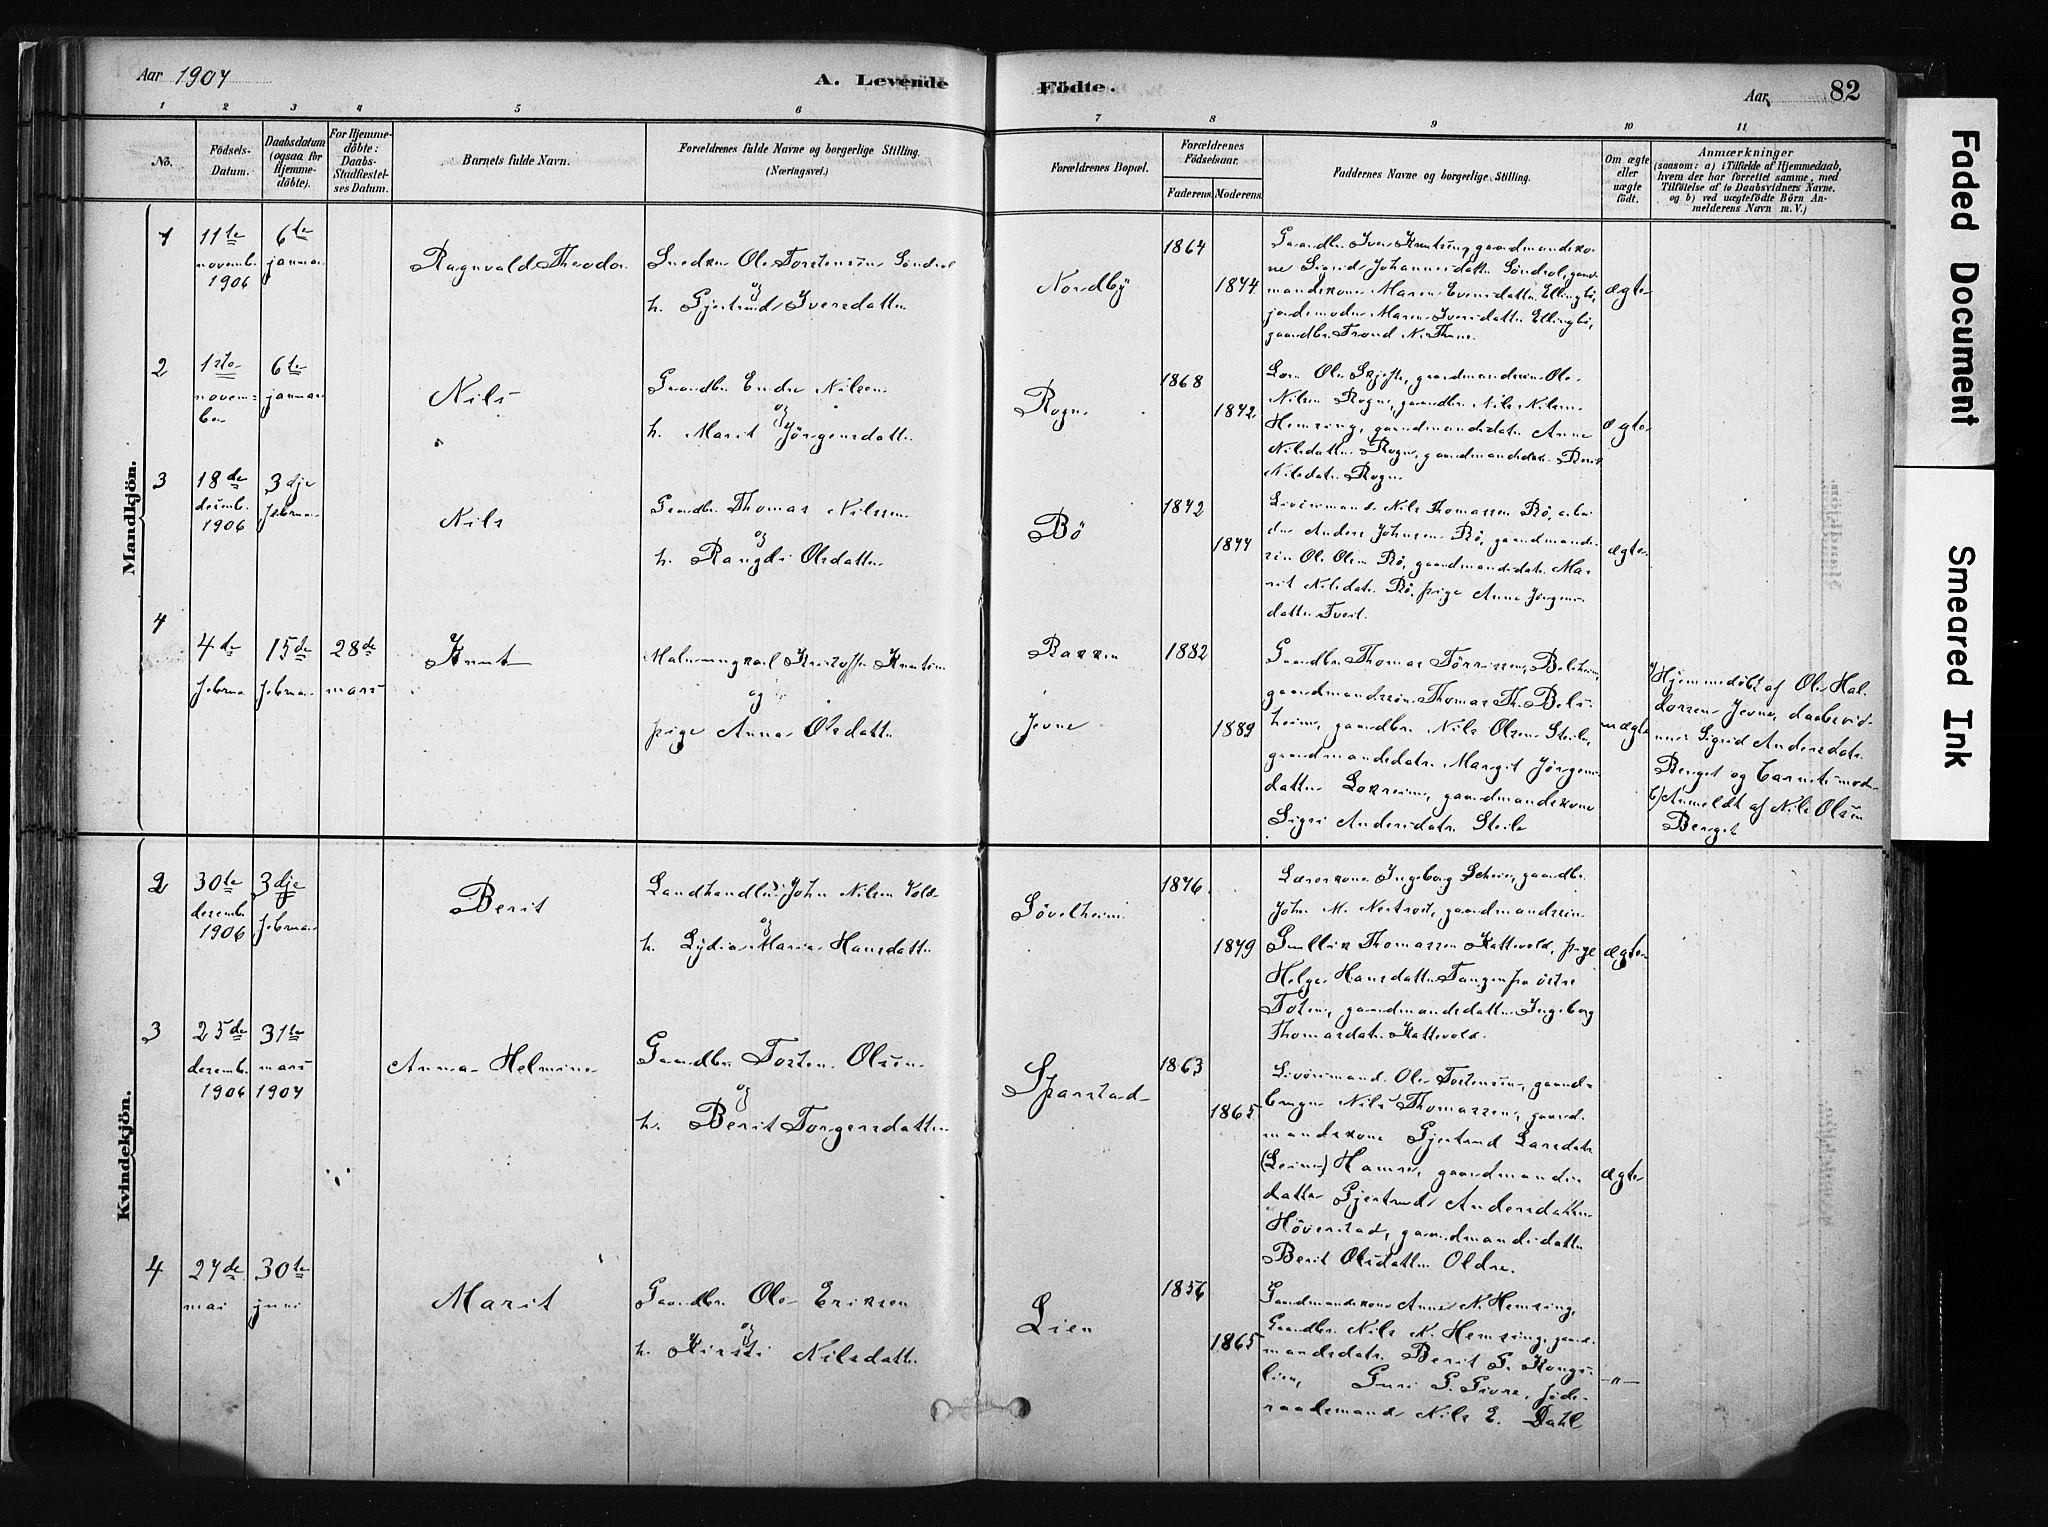 Aar 1907
A. Levende
Födte.
Aar
82
1 2 3 4 5 6 7 8 9 10 11
No.
Födsels-
Datum.
Daabsdatum
(ogsaa for
Hjemme-
döbte).
For Hjemme-
döbte:
Daabs-
Stadfæstel-
ses Datum.
Barnets fulde Navn.
Forældrenes fulde Navne og borgerlige Stilling.
(Næringsvei.)
Forældrenes Bopæl.
Forældrenes
Födselsaar.
Faderens.
Moderens.
Faddernes Navne og borgerlige Stilling.
Om ægte
eller
uægte
födt.
Anmærkninger
(saasom: a) i Tilfælde af Hjemmedaab,
hvem der har forrettet samme, med
Tilföielse af to Daabsvidners Navne.
og b) ved uægtefödte Börn An-
melderens Navn m. V.)
Mandkjön.
1
11te
novemb.
1906
6te
januar
Ragnvald Theodor
Snedker Ole Torstensön Söndrol
og
h. Gjertrud Iversdatter
Nordby
1864
1874
Gaardbr. Iver Knutsön, gaardmandsko-
ne Sigrid Johannesdatter Söndrol, gaard-
mandskone Maren Evensdatter Ellingbö,
jordemoder Maren Iversdatter Ellingbö,
gaardbr. Trond N. Thune.
ægte
2
1ste
novem-
ber
6te
januar
Nils
Gaardbr. Endre Nilsen
og
h. Marit Jörgensdatter
Rogne
1868
1872
Ole
Nilsen Rogne, gaardbr. Nils Nilsen
Hemsing, gaardmandsdatr. Anne
Nilsdatter Rogne, gaardmandsdatr. Berit
Nilsdatr. Rogne
ægte
3
18de
desemb.
1906
3dje
februar
Nils
Gaardbr. Thomas Nilssen
og
h. Rangdi Olsdatter
Bö
1872
1877
Livöresmand Nils Thomassen Bö, arbei-
der Anders Johnsen Bö, gaardmands-
sön Ole Olsen Bö, gaardmandsdatr. Ma-
rit Nilsdatr. Bö, pige Anne Jörgens-
datter Tveit.
ægte
4
4de
februar
15de
februar
28de
mars
Knut
Kristoffer Knutsen
og
pige Anna Olsdatter
Bakken
Jevne
1882
1889
Gaardbr. Thomas Törrissen Belsheim,
gaardmandssön Thomas Th. Bels-
heim, gaardbr. Nils Olsen Steile,
gaardmandsdatr. Margit Jörgens-
datter Lokreim, gaardmandskone
Sigri Andersdatr. Steile
uægte
a) Hjemmedöbt af Ole Hal-
dorsen Jevne, daabsvid-
ner Sigrid Andersdatr.
Berget og barnets moder
b) Anmeldt af Nils Olsen
Berget
Kvindekjön.
2
30te
desemb.
1906
3dje
februar
Berit
Landhandler John Nilsen Vold
og
h. Lydia Maria Hansdatter
Lövelheim
1876
1879
Lærerkone Ingeborg Scheie, gaardbr.
John M. Nestrost, gaardmandssön
Gullik Thomassen Kattevold, pige
Helga Hansdatter Tangen fra östre
Toten, gaardmandsdatter Ingeborg
Thomasdatr. Kattevold.
ægte
3
25de
desemb.
1906
31te
mars
1907
Anna Helmine
Gaardbr. Torsten Olsen
og
h. Berit Torgersdatter
Sparstad
1863
1865
Livöresmand Ole Torstensön, gaard-
bruger Nils Thomassen, gaard-
mandskone Gjertrud Larsdatr.
(Leine) Hamre, gaardmands-
datter Gjertrud Andersdatter
Höverstad, gaardmandsdatter
Berit Olsdatter Oldre.
ægte
4
27de
mai
30te
juni
Marit
Gaardbr. Ole Eriksen
og
h. Kirsti Nilsdatter
Lien
1856
1865
Gaardmandskone Anne N. Hemsing,
Gaardbr. Nils N. Hemsing, gaard-
mandsdatr. Berit G. Kongs-
lien, Guri G. Givre, föde-
raadsmand Nils E. Dahl
—„—
Faded Document
Smeared Ink